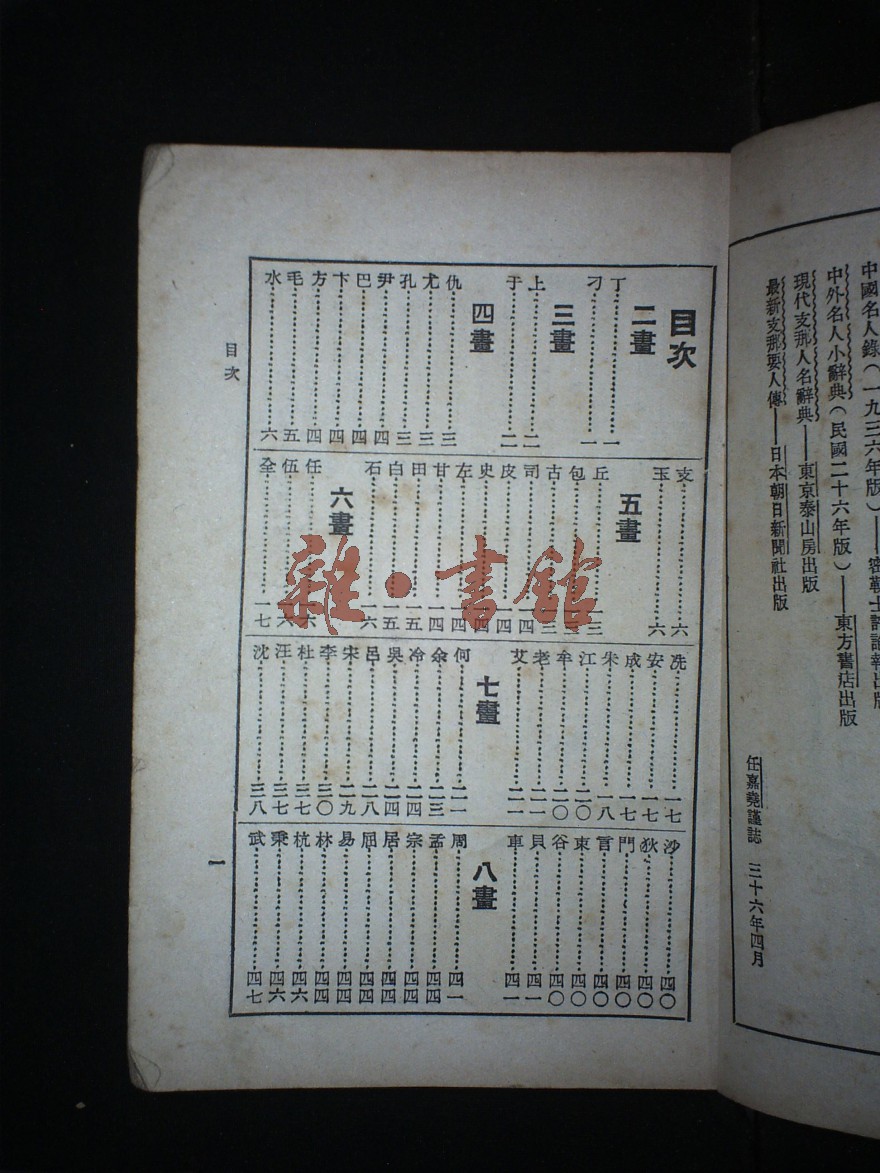 中國名人錄(一九三六年版)——密勒士評論報出版
中外名人小辭典(民國二十六年版)——東方書店出版
現代支那人名辭典——東京泰山房出版
最新支那要人傳——日本朝日新聞社出版
任嘉堯謹誌 三十六年四月
目次
二畫
丁……一
刁……一
三畫
上……二
于……二
四畫
仇……三
尤……三
孔……三
尹……四
巴……四
卞……四
方……四
毛……五
水……六
支……六
玉……六
五畫
丘……一三
包
古
司……一四
皮
史……一四
左……一四
甘……一四
田……一五
白……一五
石……一六
六畫
任……一六
伍……一六
全……一七
冼……一七
安……一七
成……一七
朱……一八
江……二〇
牟……二〇
老……二一
艾……二一
七畫
何……二一
余……二三
冷……二四
吳……二四
呂……二八
宋……二九
李……三〇
杜……三七
汪……三七
沈……三八
沙……四〇
狄……四〇
門……四〇
言……四〇
束……四〇
谷……四〇
貝……四一
車……四一
八畫
周……四一
孟……四四
宗……四四
居……四四
屈……四四
易……四四
林……四四
杭……四六
秉……四六
武……四七
目次
一
雜·書館